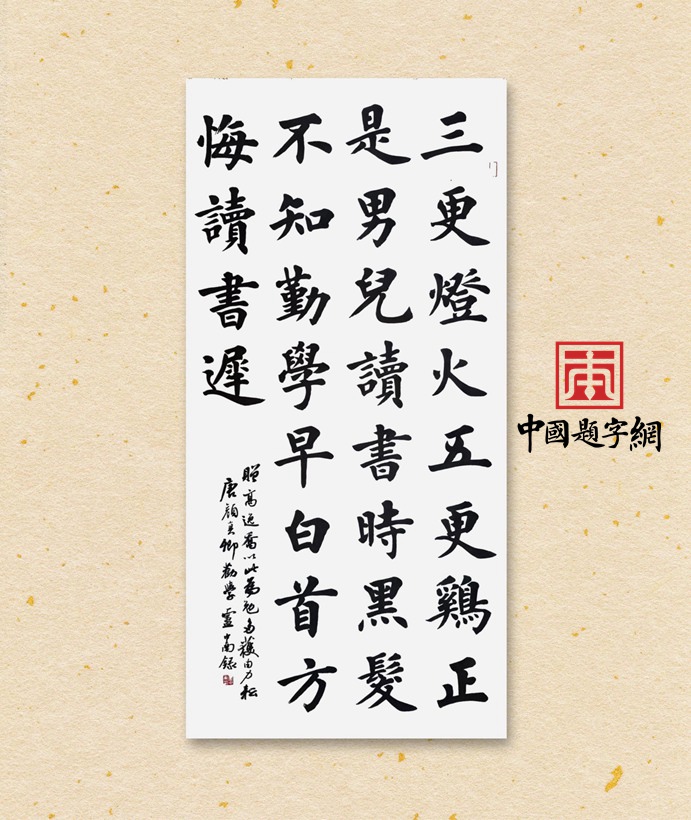 三更燈火五更鷄正
是男兒讀書時黑髮
不知勤學早白首方
悔讀書遲
唐顏真卿勸學
中國題字網